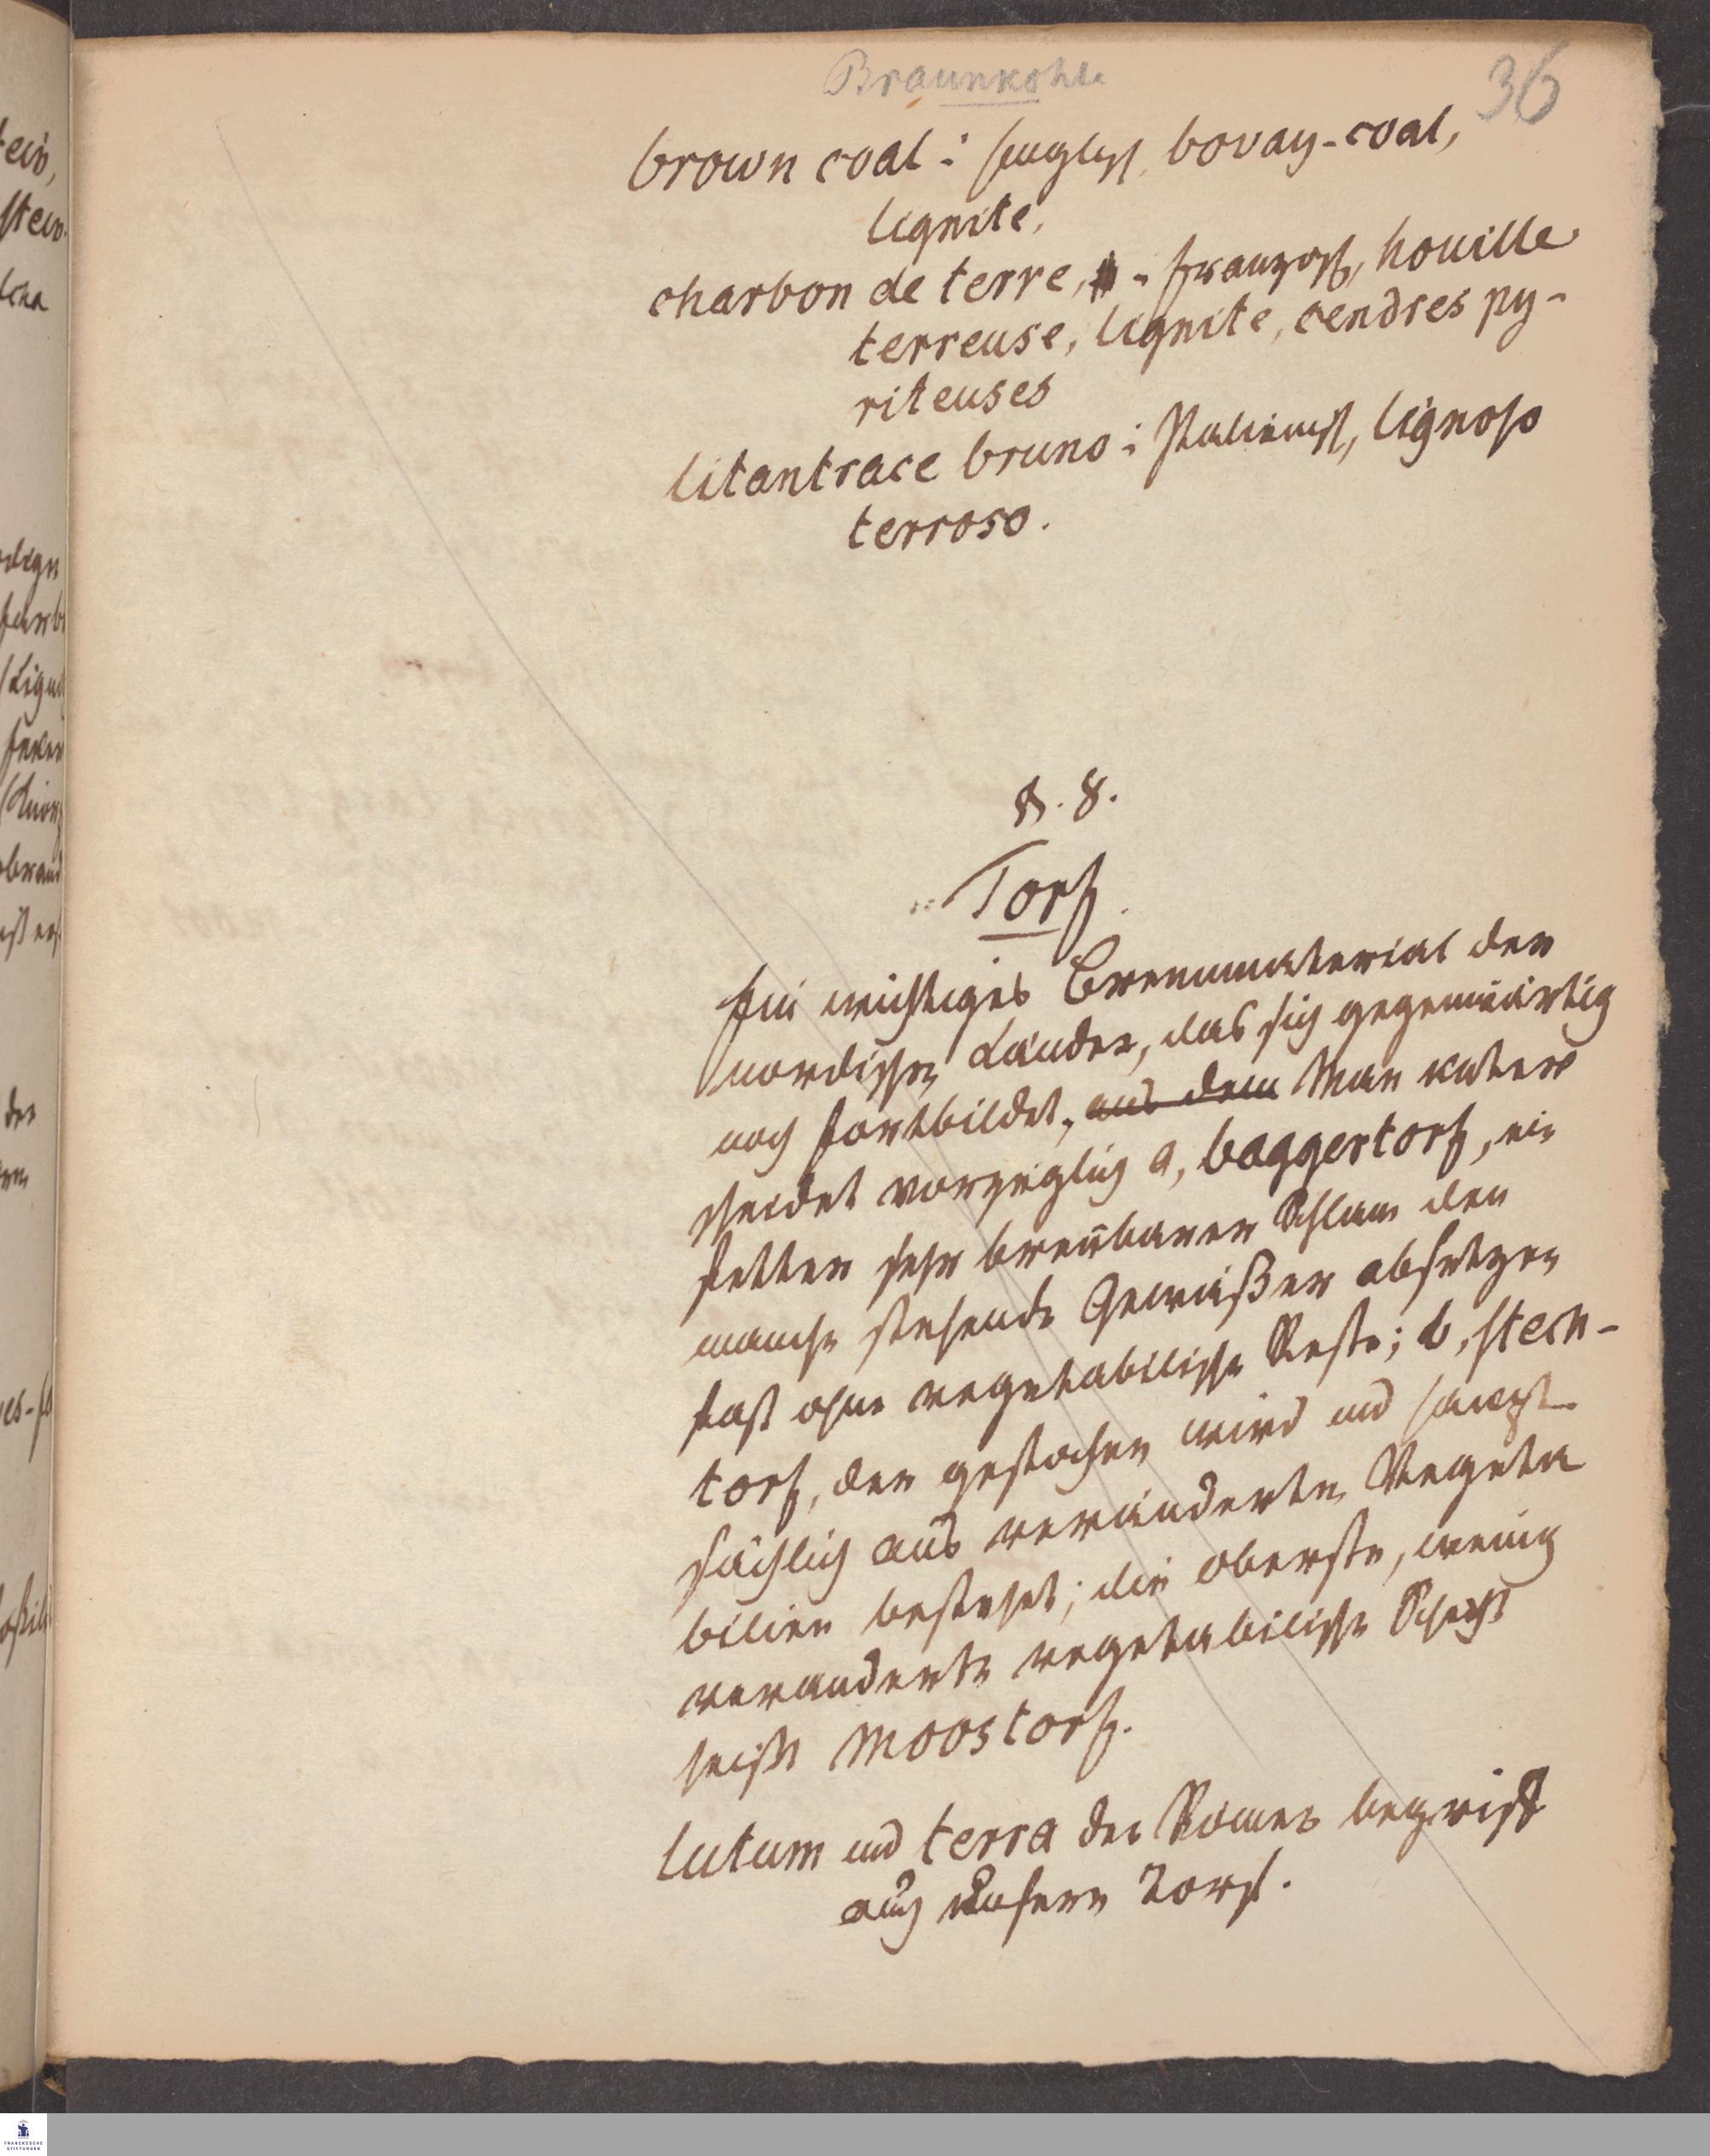 Braunkohle
36
brown coal : englisch, bovay-coal,
lignite,
charbon de terre, - französisch, houille
terreuse, lignite, cendres py-
riteuses
litantrace bruno : Italienisch, lignoso
terroso.
§. 8.
Torf.
Ein wichtiges Brennmaterial der
nordischen Länder, das sich gegenwärtig
noch fortbildet, aus dem Man unter
scheidet vorzüglich a, baggertorf, ein
fetter sehr breñbarer Schlam den
manche stehende Gewäßer absetzen
fast ohne vegetabilische Reste; b, stech-
torf, der gestochen wird und haupt
sächlich aus veränderten Vegeta
bilien bestehet; die oberste, wenig
veranderte vegetabilische Schicht
heißt Moostorf.
lutum und terra der Römer begreift
auch unsern Torf.
FRANCKESCHE
STIFTUNGEN